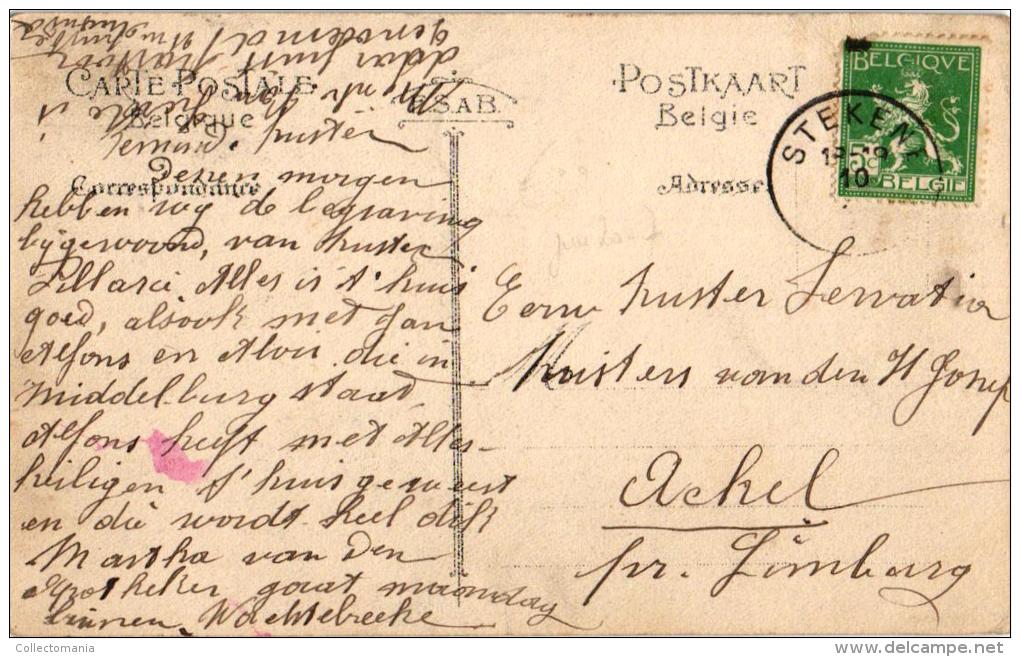 CARTE POSTALE
Belgique
Correspondance
E.S.A.B.
POSTKAART
Belgie
Adresse
BELGIQUE
5c
BELGIË
STEKENE
18-19
10
Beminde Zuster
Dezen morgen
hebben wij de begraving
bijgewoond, van Zuster
Alles is t'huis
goed, alsook met Jan
Alfons en Aloïs die in
Middelburg staat
Alfons heeft met Aller-
heiligen t'huis geweest
en die wordt heel dik
Martha van den
Apotheker gaat maandag
binnen. Wachtebeeke
Eerw Zuster Servatia
Zusters van den H Jozef
Achel
pr. Limburg
Collectomania